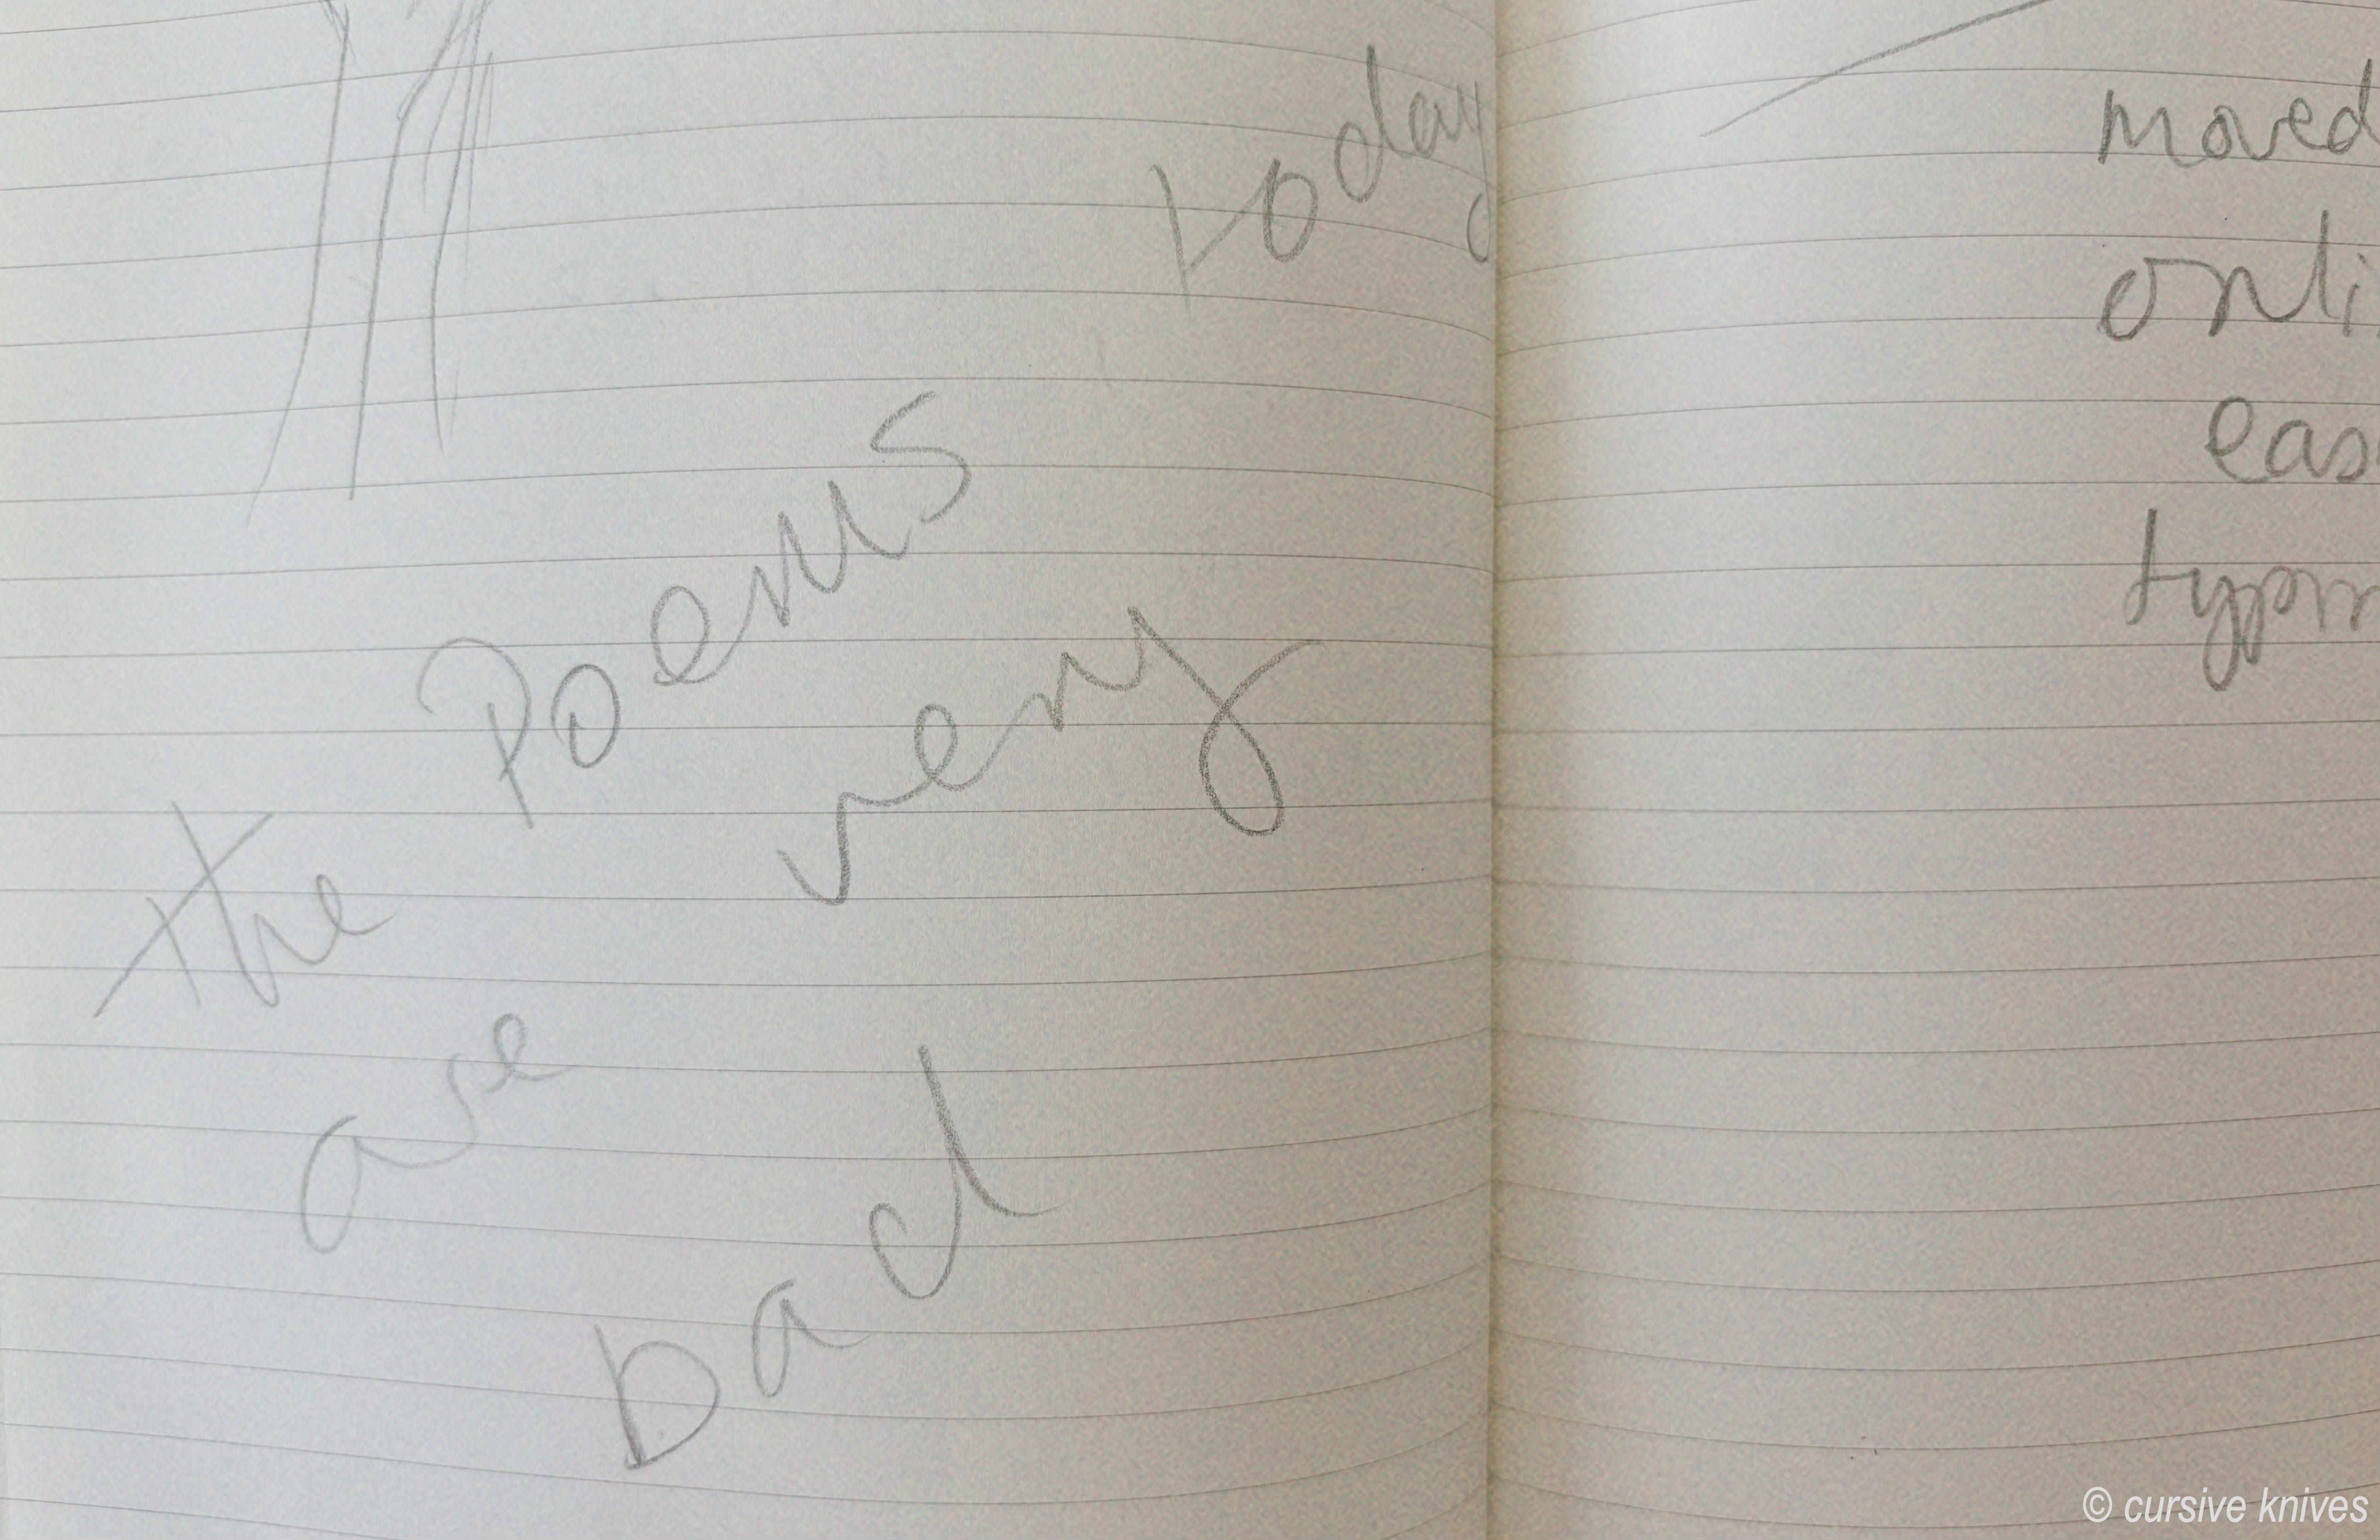 the Poems today
are very
bad
moved
onli
eas
typin
© cursive knives